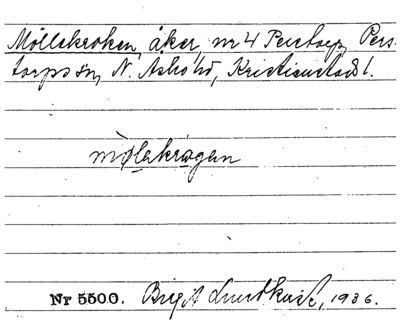 Möllekroken, åker, nr 4 Perstorp, Pers-
torps sn, N. Åsbo hd, Kristianstads l.
mòlakrɷgan
Nr 5500. Birgit Lundkvist, 1936.